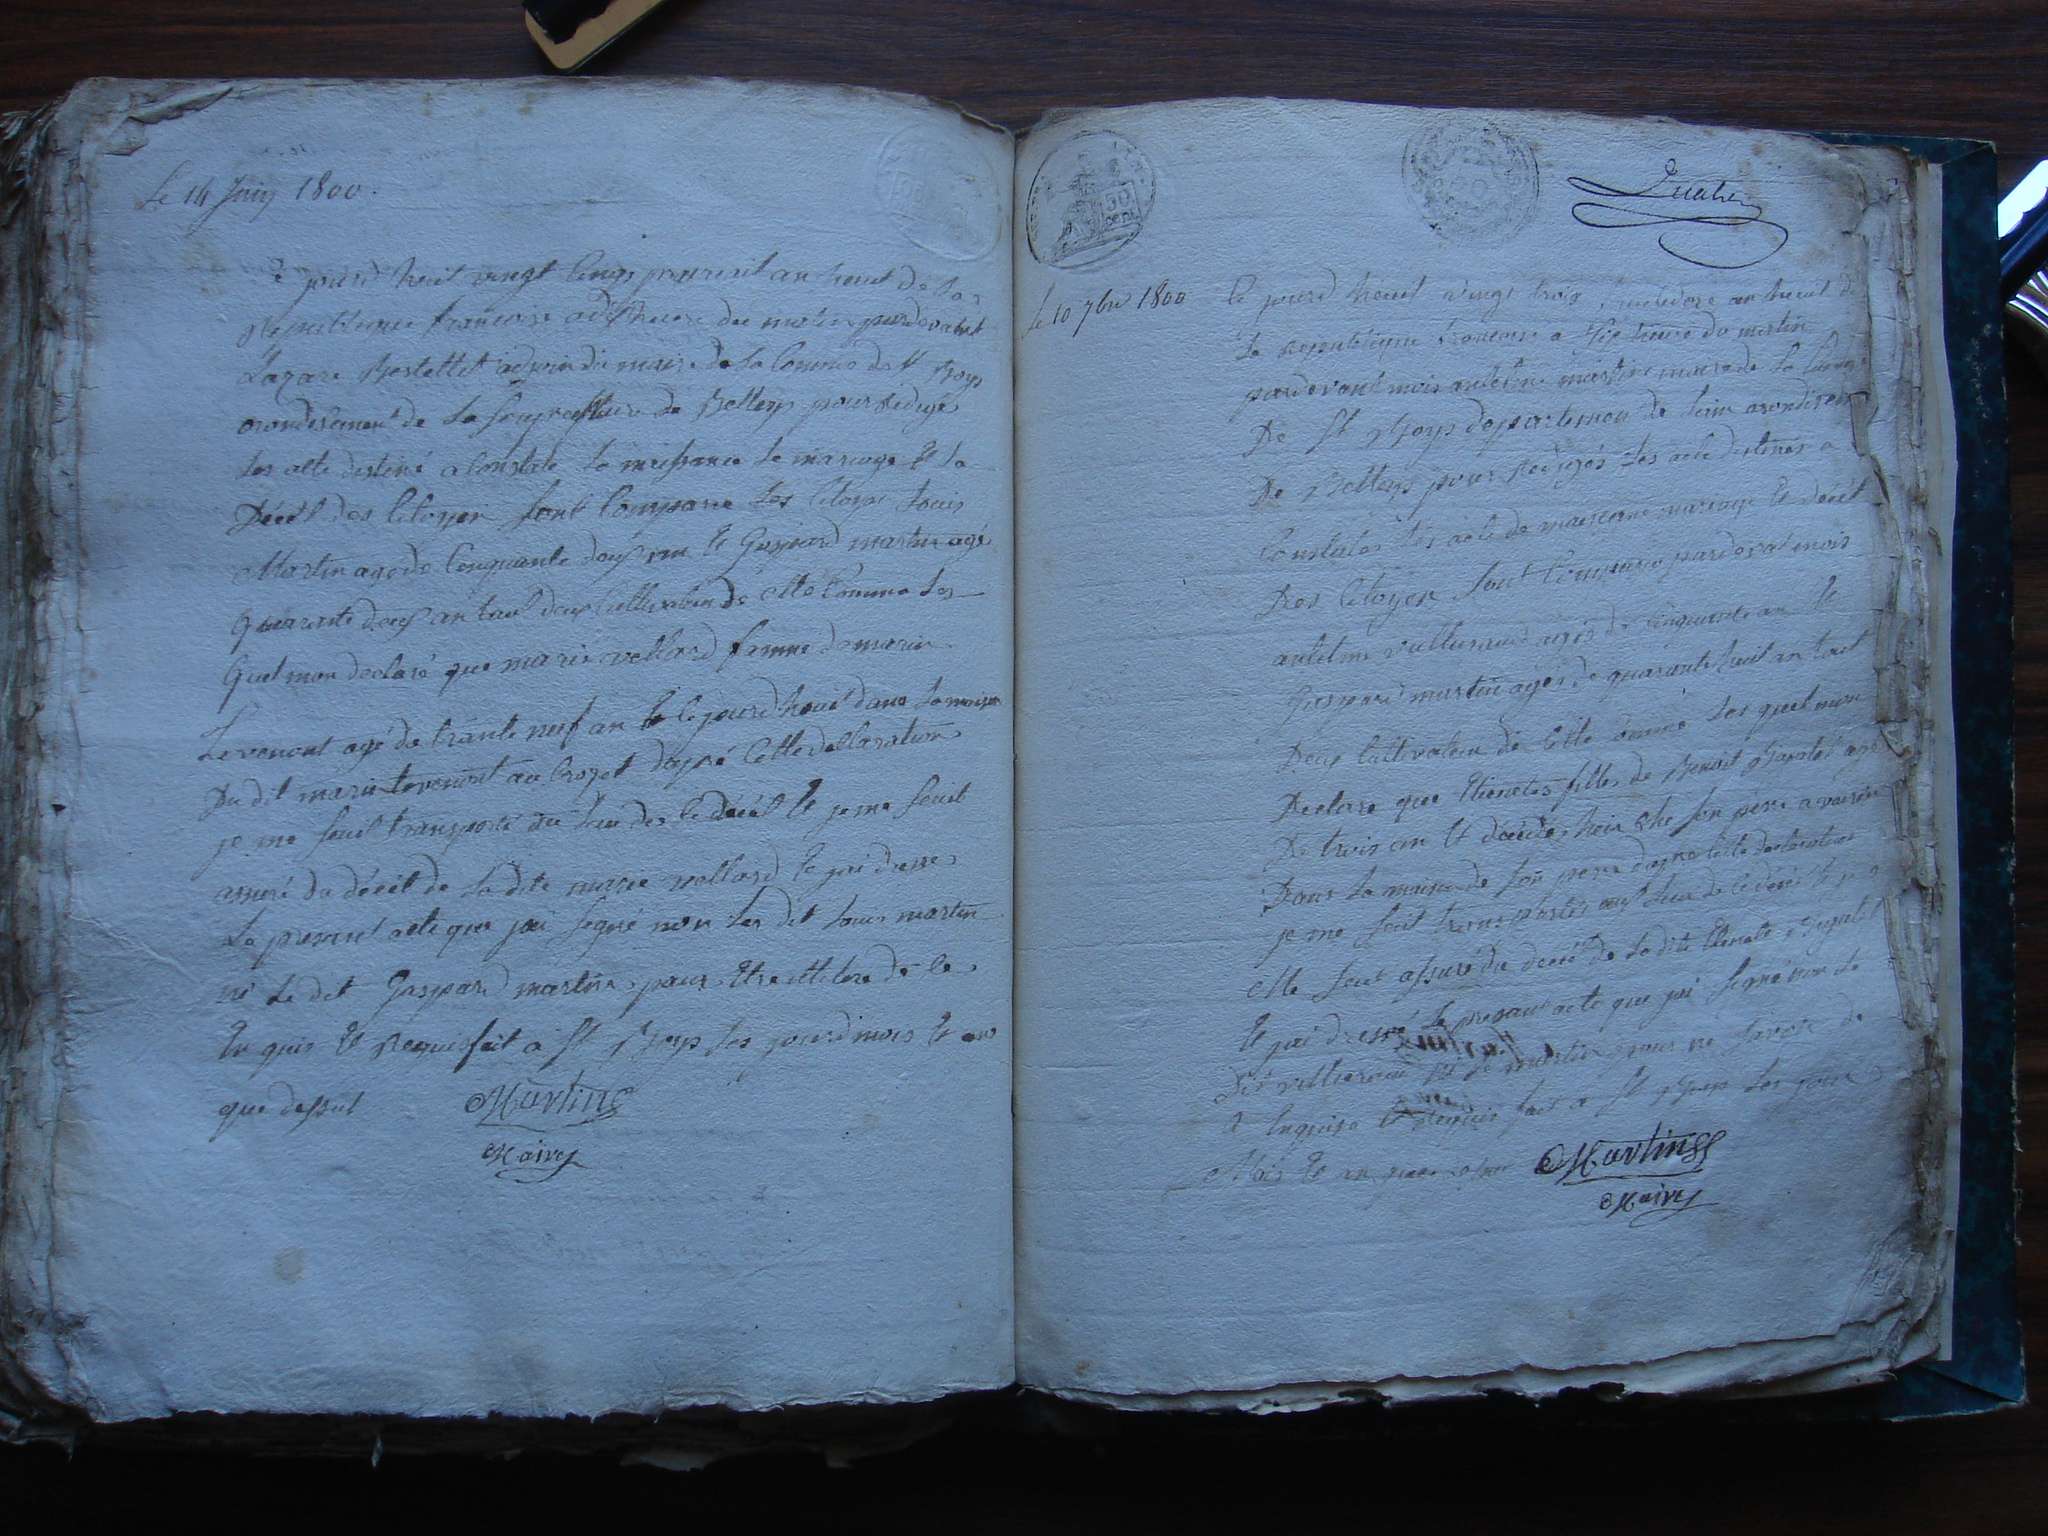 Le 14 Juin 1800.
ce jourd heuit vingt Cinqs prerial an heuit de la
Republique francoise a dix heure du matin pardevant
Lazare adjoin du maire de la Comune de St Boys
arondisement de la Souprefecture de Belley pour rediges
les acte destiné a Constate la naissance le mariage et la
Décét des Citoyen sont Comparu les Citoyen Louis
Martin age de Cinquante deux an et Gaspard martin agé
Quarante deux an tout deux Cultivateur de cette Comune Les
Quel mon declaré que marie vellard femme de marin
Tevenont agé de trante neuf an le ce jourd heuit dans la maison
Du dit marin tevenont au Crozet dapré cette declaration
je me suit transporté au Lieu de ce décét et je me suit
assuré du décét de la dite marie vellard et jai dresse
Le presant acte que jai segné non les dit Louis martin
ni Le dit Gaspard martin pour Etre illitere de ce
Enquis et Requis fait a St Boys les jour et mois et an
que dessus Martin
Maire
30
cent
Le 10 7bre 1800
Ce jourd heuit vingt trois fructidore an heuit de
La Republique francoise a dix heure du matin
pardevant mois antelme martin maire de la Comune
De St Boys departement de Lain arondisement
De Belley pour rediges les acte destinés a
Constates les acte de naisance mariage et décét
Des Citoyen sont Comparu pardevat mois
antelme vullieraud agés de cinquante an et
Gaspard martin agés de quarante heuit an tout
Deux Cultivateur de Cette Comune les quel mon
Declare que fille de Benoit agé
De trois an et décédé heir ché son pere
Dans la maison de son pere dapre cette declaration
je me suit transportés aux Lieu de ce décét et je
me suit assuré du décét de la dite
Et jai dressé le presant acte que jai segné non le
Dit vullieraud et le martin pour ne savoir de
Enquise et requis fait a St Boys les jour
Mois et an que desus Martin
Maire